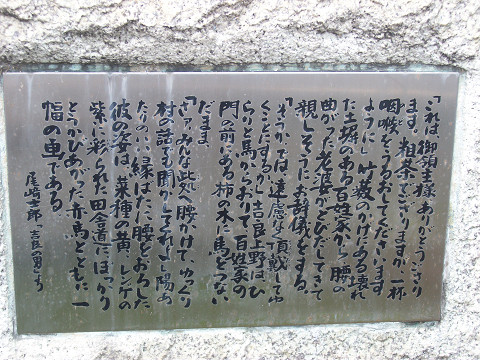 「これは、御領主様、ありがとうござり
ます。粗茶でござりますが、一杯
咽喉をうるおしてくださいます
ように」竹藪のかげにある壊れ
た土塀のある百姓家から、腰の
曲がった老婆がとびだしてきて
親しそうにお辞儀をする。
「そうか、では、遠慮なく頂戴してゆ
くことにするか」吉良上野は、ひ
らりと馬からおりて、百姓家の
門の前にある柿の木に馬をつない
だまま、
「さァ、みんな此処へ腰かけて、ゆっくり
村の話でも聞かしてくれ」陽あ
たりのいい縁ばたに腰をおろした
彼の姿は、菜種の黄、レンゲの
紫に彩られた田舎道に、ほっかり
とうかびあがった赤馬とともに、一
幅の画である。
尾崎士郎、「吉良の男」より